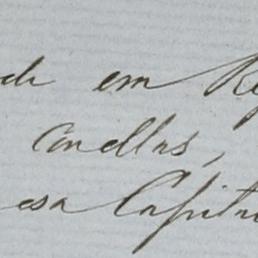 de em Re
Conellas,
esa Capitu